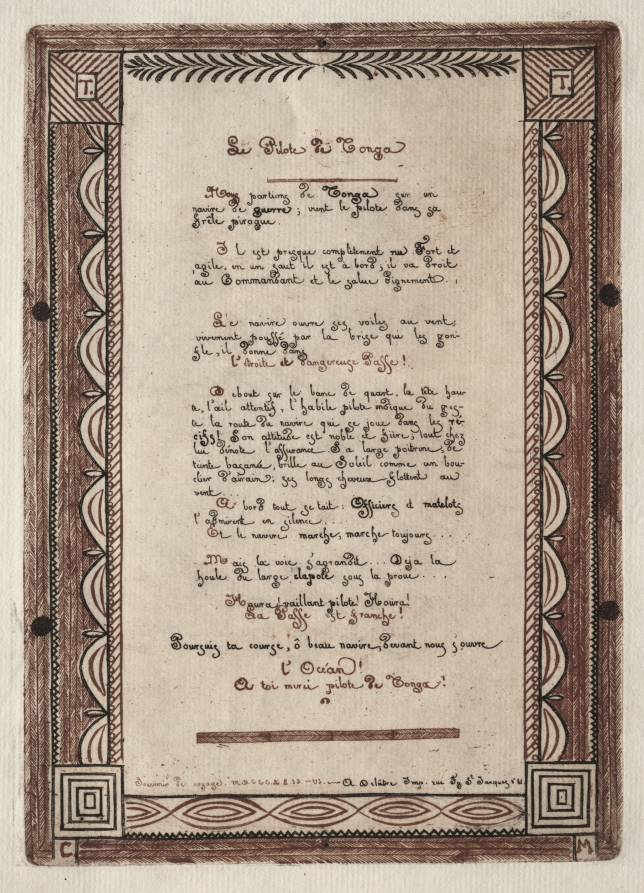 T. T.
Le Pilote de Tonga
Nous partions de Tonga sur un
navire de guerre; vient le pilote dans sa
frêle pirogue.
Il est presque complètement nu Fort et
agile, en un saut il est à bord; il va droit
au Commandant et le salue dignement.
Le navire ouvre ses voiles au vent;
vivement poussé par la brise qui les gon-
fle, il donne dans
l'étroite et dangereuse Passe!
Debout sur le banc de quart, la tête hau-
te, l'œil attentif, l'habile pilote indique du ges-
te la route du navire qui se joue dans les ré-
cifs! Son attitude est noble et fière; tout chez
lui dénote l'assurance Sa large poitrine, de
teinte basanée, brille au Soleil comme un bou-
clier d'airain; ses longs cheveux flottent au
vent...
A bord tout se tait: Officiers et matelots
l'admirent en silence...
Et le navire marche, marche toujours...
Mais la voie s'agrandit... Déja la
houle du large clapote sous la proue...
Houra! vaillant pilote! Houra!
La Passe est franchie!
Poursuis ta course, ô beau navire, devant nous s'ouvre
l'Océan!
A toi merci pilote de Tonga!
Souvenir de voyage. A Delâtre Imp. rue Fg St Jacques
C. M